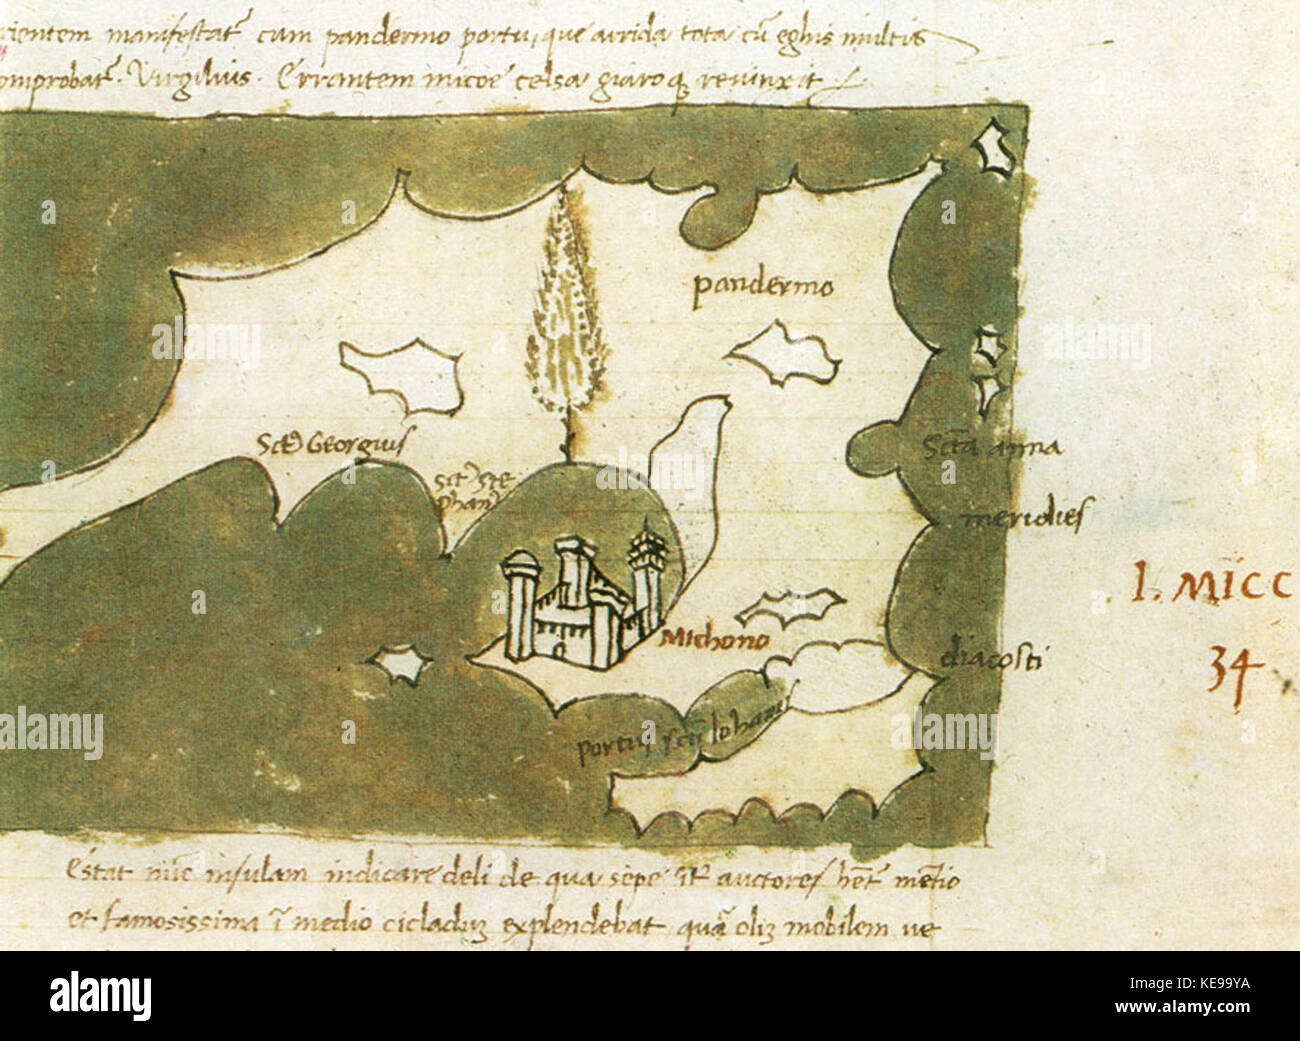 rientem manifestat̃ cum pandermo portu, que arrida tota cũ eghis multis
omprobat̃. Virgilius. Errantem micoe celsa giaroq, revinxit
pandermo
Sctꝰ Georgius
Sctꝰ Ste
phanꝰ
Scta anna
meridies
I. MICC
34
Michono
diacosti
portus scti Iohanis
Estat nũc insulam indicare deli de qua sepe ĩter auctores hẽt mẽtio
et famosissima ĩ medio cicladuz explendebat quã oliz mobilem ve
alamy
Image ID: KE99YA
www.alamy.com